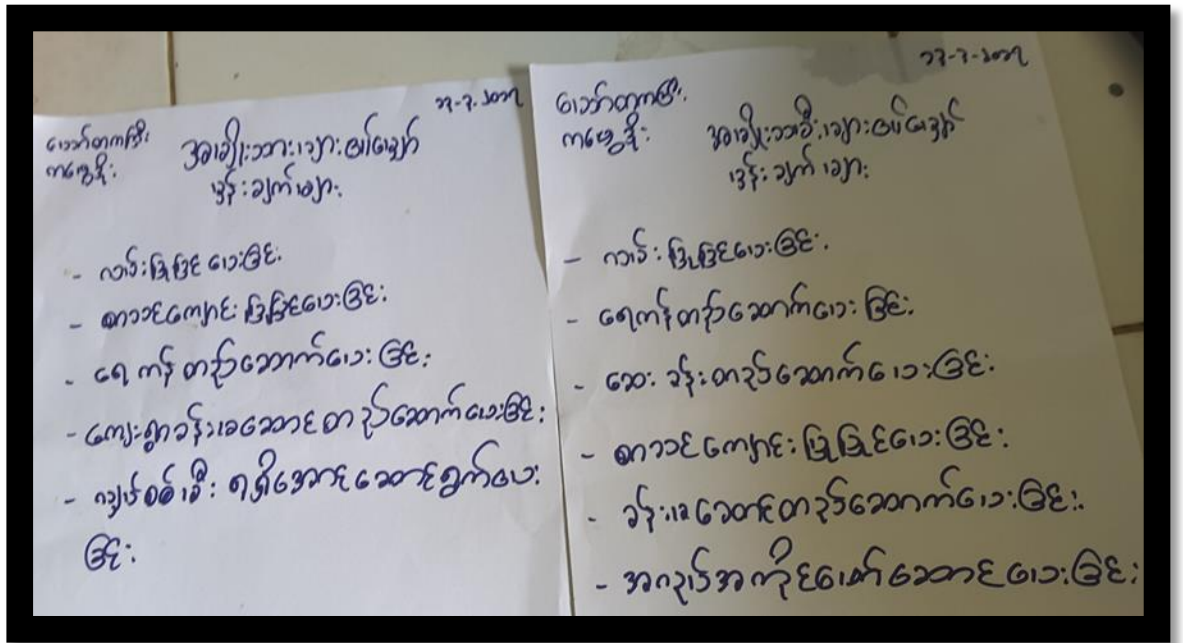 ၁၃-၃-၂၀၁၇
အမျိုးသားများ၏မျှော်
မှန်းချက်များ
- လမ်းပြုပြင်ပေးခြင်း
- စာသင်ကျောင်းပြုပြင်ပေးခြင်း
- ရေကန်တည်ဆောက်ပေးခြင်း
- ကျေးရွာခန်းမဆောင်တည်ဆောက်ပေးခြင်း
- လျှပ်စစ်မီးရရှိအောင်ဆောင်ရွက်ပေး
ခြင်း
၁၃-၃-၂၀၁၇
အမျိုးသမီးများ၏မျှော်
မှန်းချက်များ
- လမ်းပြုပြင်ပေးခြင်း
- ရေကန်တည်ဆောက်ပေးခြင်း
- ဆေးခန်းတည်ဆောက်ပေးခြင်း
- စာသင်ကျောင်းပြုပြင်ပေးခြင်း
- ခန်းမဆောင်တည်ဆောက်ပေးခြင်း